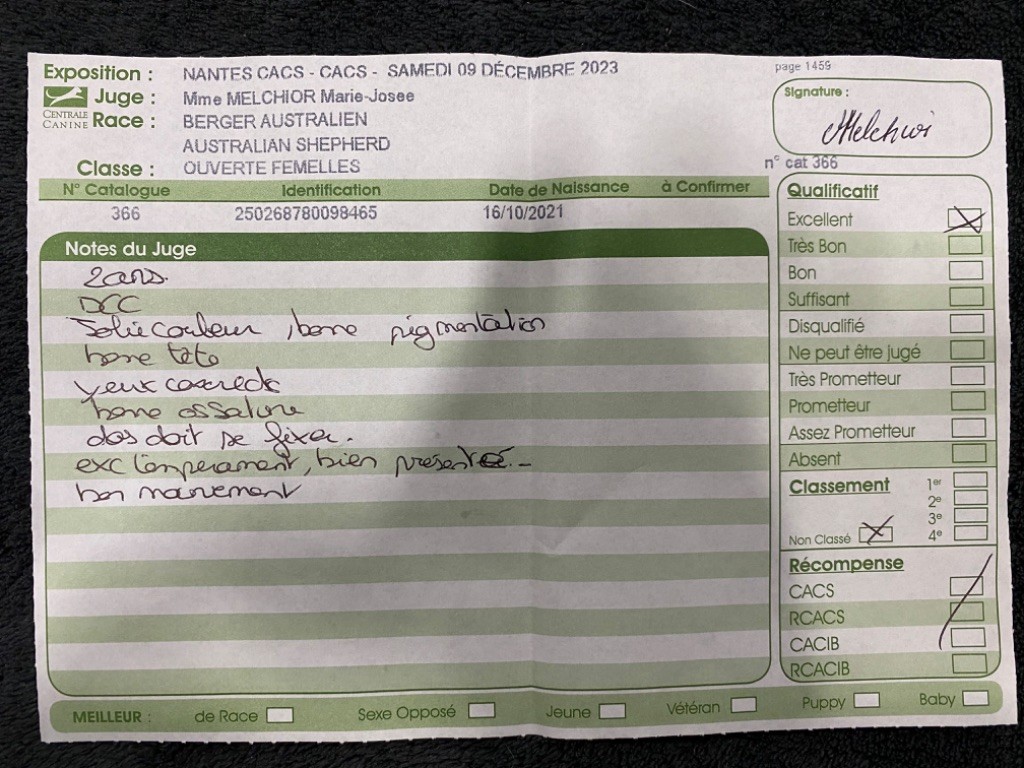 Exposition : NANTES CACS - CACS - SAMEDI 09 DÉCEMBRE 2023
page 1459
Juge : Mme MELCHIOR Marie-Josee
Signature :
Melchior
CENTRALE CANINE
Race : BERGER AUSTRALIEN
AUSTRALIAN SHEPHERD
Classe : OUVERTE FEMELLES
n° cat 366
N° Catalogue Identification Date de Naissance à Confirmer
366 250268780098465 16/10/2021
Notes du Juge
2 ans.
DCC
Jolie couleur, bone pigmentation
bone tete
yeux corrects
bone ossature
dos doit se fixer.
exc temperament, bien présenté. -
bon mouvement
Qualificatif
Excellent
Très Bon
Bon
Suffisant
Disqualifié
Ne peut être jugé
Très Prometteur
Prometteur
Assez Prometteur
Absent
Classement 1er
2e
3e
Non Classé 4e
Récompense
CACS
RCACS
CACIB
RCACIB
MEILLEUR : de Race Sexe Opposé Jeune Vétéran Puppy Baby